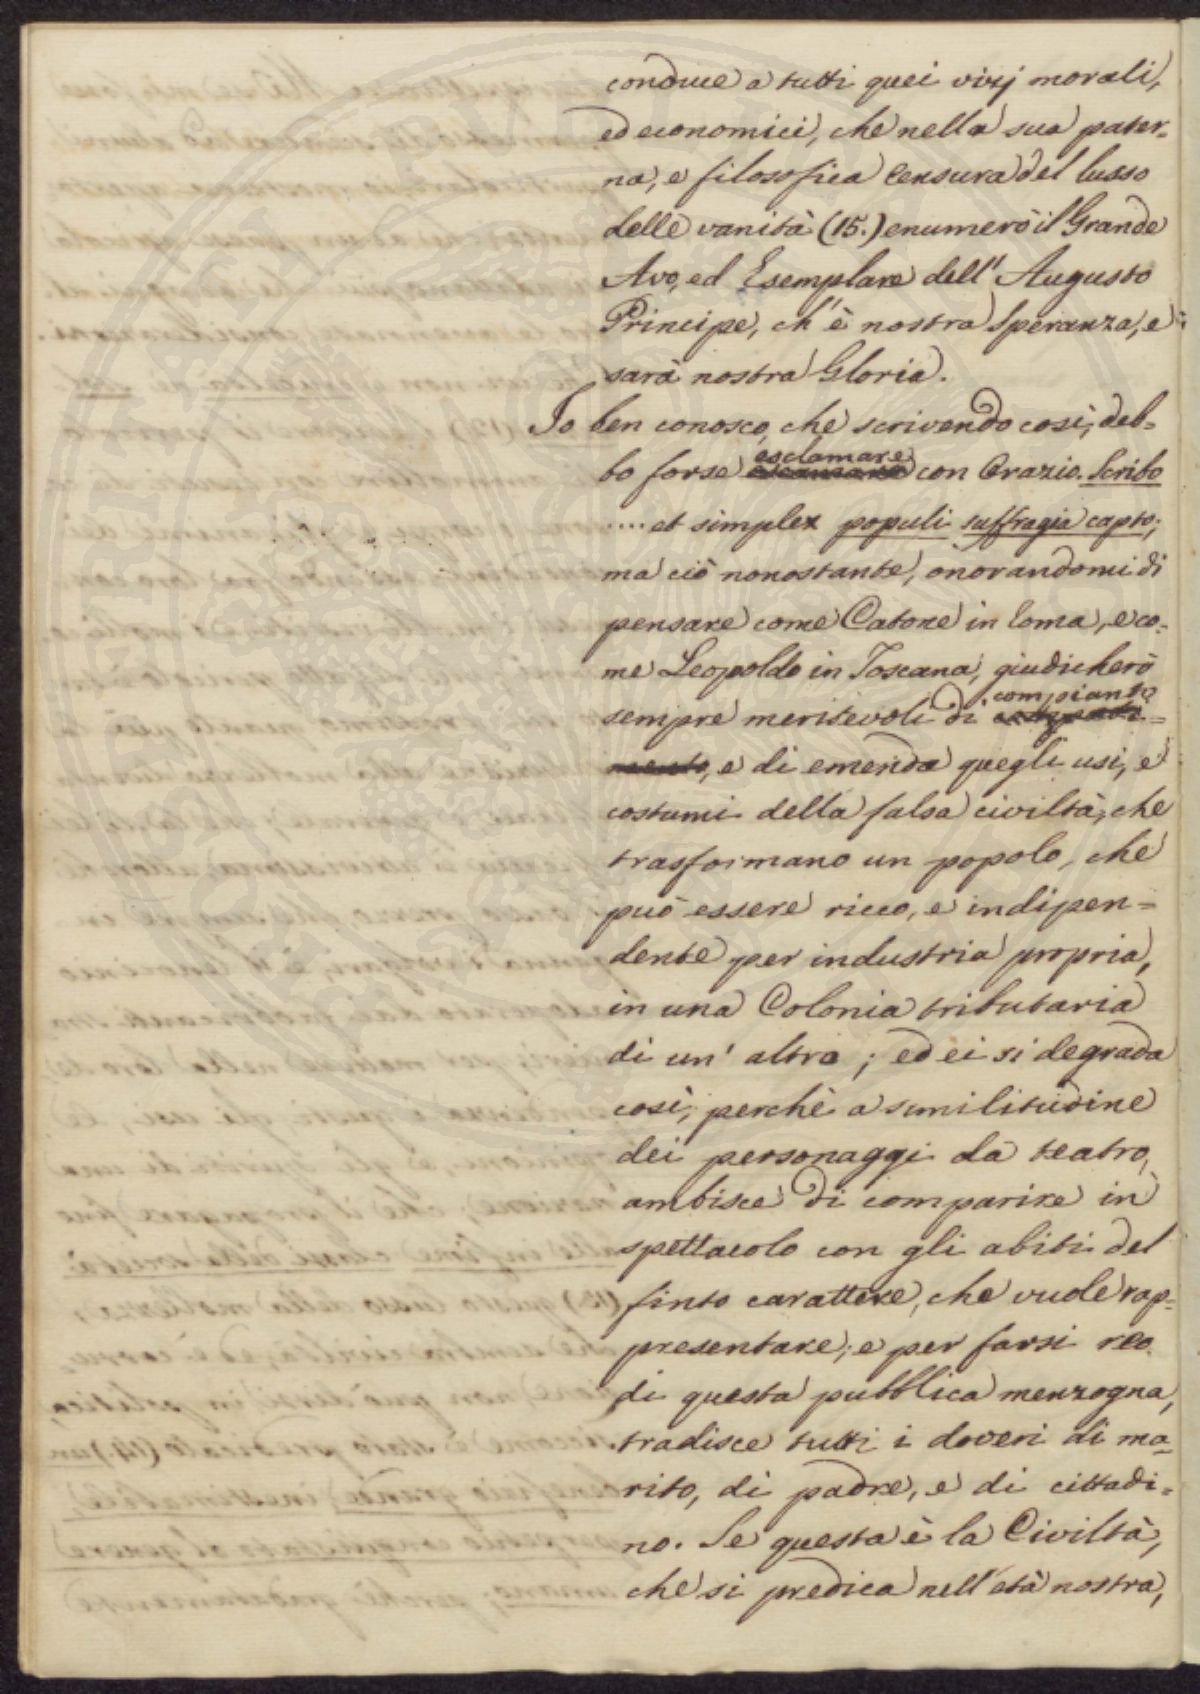 conduce a tutti quei vizj morali,
ed economici, che nella sua pater=
na, e filosofica Censura del lusso
delle vanità (15.) enumerò il Grande
Avo, ed Esemplare dell' Augusto
Principe, ch' è nostra Speranza, e
sarà nostra Gloria.
Io ben conosco, che scrivendo così, deb=
bo forse esclamare con Orazio. Scribo
.... et simplex populi suffragia capto;
ma ciò nonostante, onorandomi di
pensare come Catone in Roma, e co=
me Leopoldo in Toscana, giudicherò
sempre meritevoli di compianto
, e di emenda quegli usi, e
costumi della falsa civiltà, che
trasformano un popolo, che
può essere ricco, e indipen=
dente per industria propria,
in una Colonia tributaria
di un' altra; ed ei si degrada
così, perchè a similitudine
dei personaggi da teatro,
ambisce di comparire in
spettacolo con gli abiti del
finto carattere, che vuole rap=
presentare; e per farsi reo
di questa pubblica menzogna,
tradisce tutti i doveri di ma=
rito, di padre, e di cittadi=
no. Se questa è la Civiltà,
che si predica nell' età nostra,